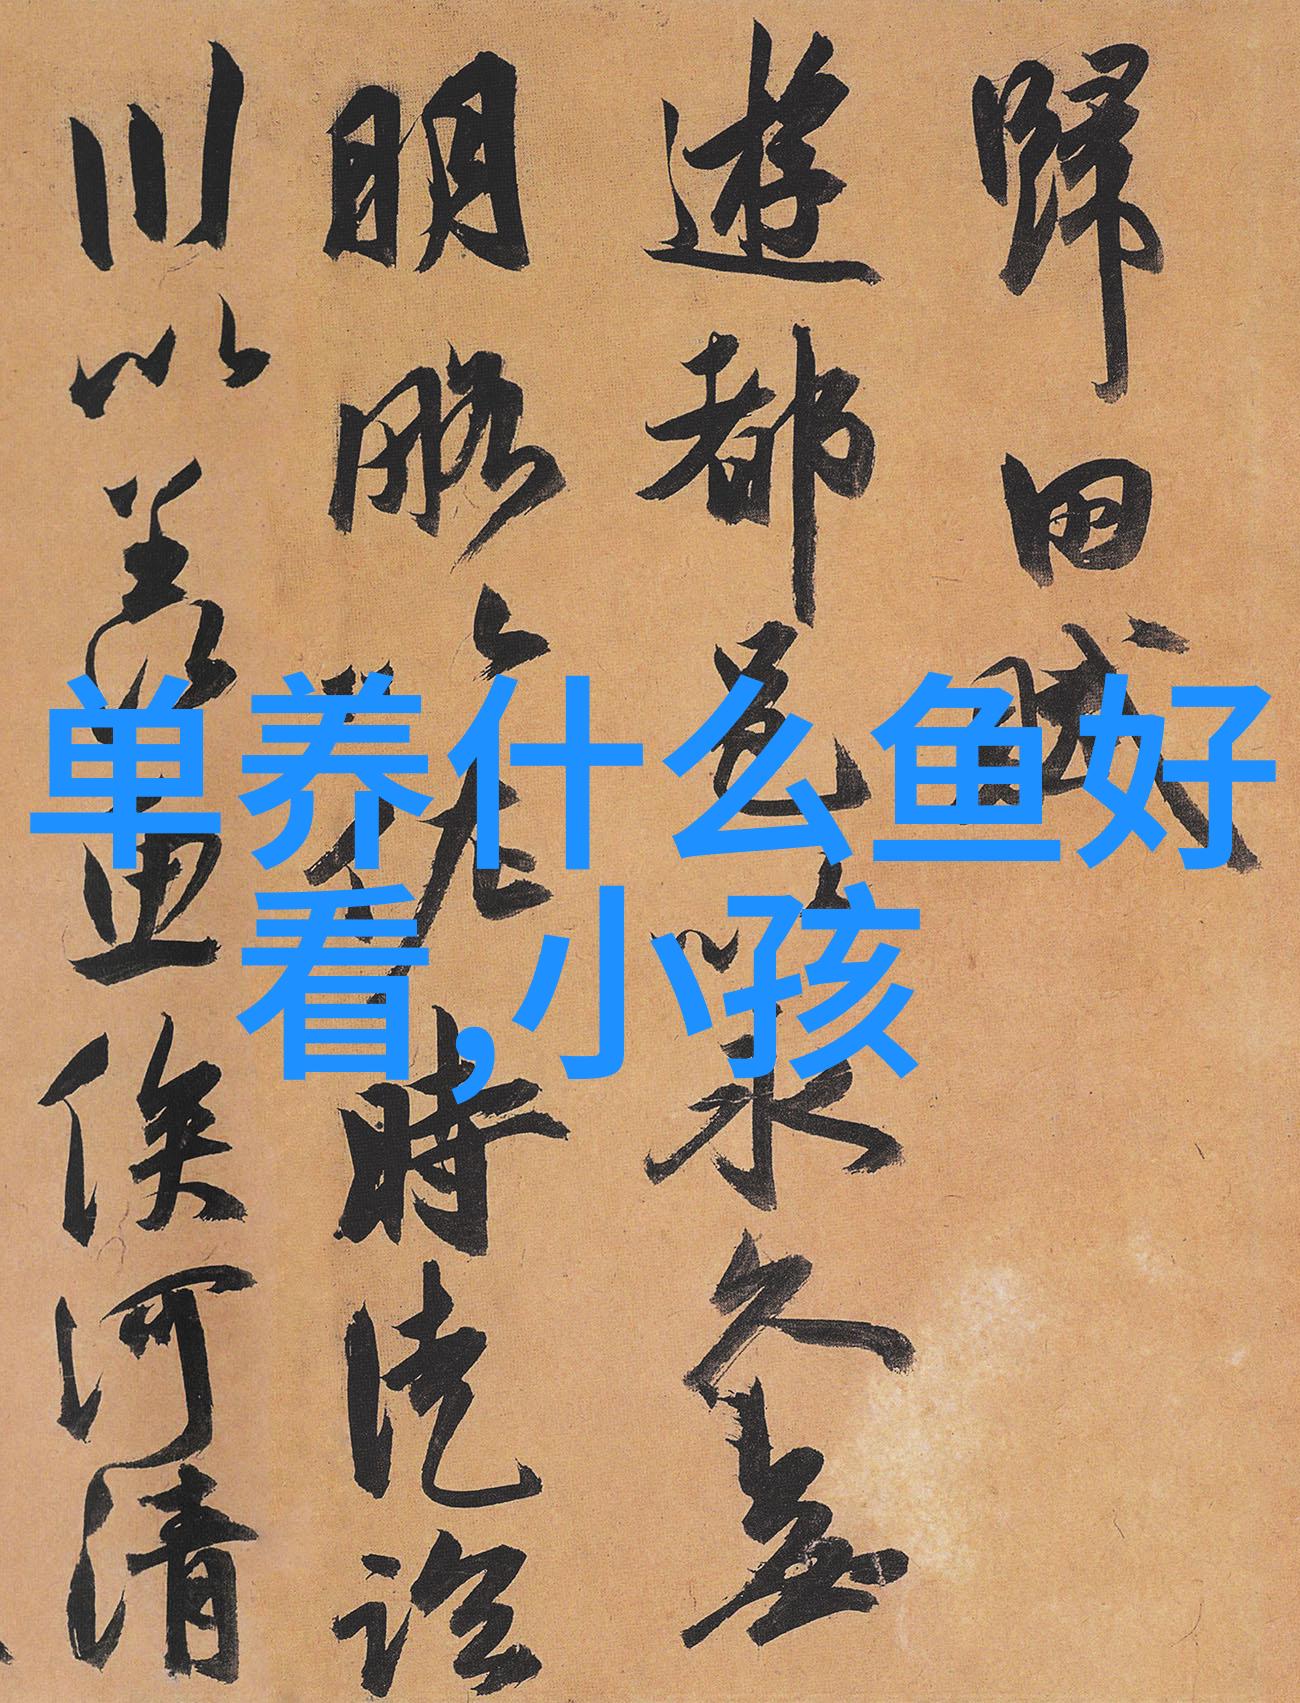 歸田賦
遊都邑以永久無
明略以佐時徒臨
川以羨魚俟河清
单养什么鱼好
看,小孩